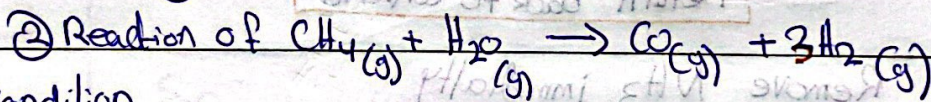 ② Reaction of CH4(g) + H2O(g) → CO(g) + 3H2(g)